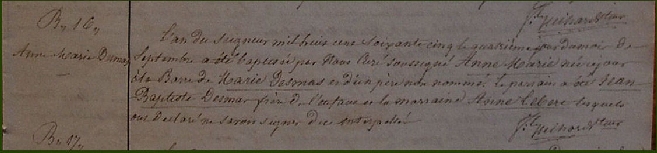 Jh Guihard Rtour
Bn 16
Anne Marie Dumas
L'an du seigneur mil huit cent soixante cinq le quatrième jour du mois de
Septembre a été baptisée par Nous Curé soussigné Anne Marie née ce jour
de Marie Desmas et d'un père non nommé le parrain a été Jean
Baptiste Desmas frère de l'enfant et la marraine Anne lesquels
ont déclaré ne savoir signer de ce interpellé
Bn 17